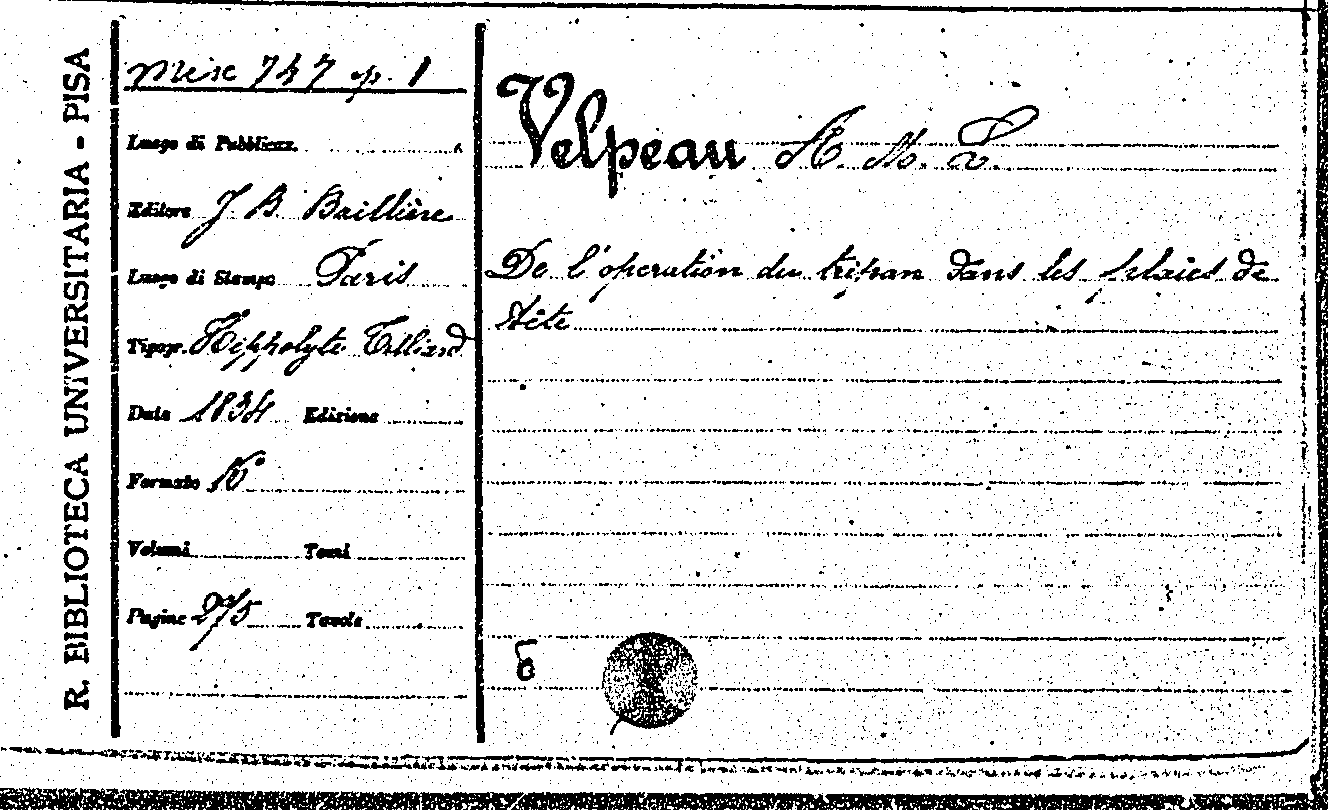 R. BIBLIOTECA UNIVERSITARIA - PISA
Misc 747 p. 1
Luogo di Pubblicaz.
Editore J B Baillière
Luogo di Stampa Paris
Tipogr. Hippolyte Tilliard
Data 1834 Edizione
Formato
Volumi Tomi
Pagine 275 Tavole
Velpeau A. M.
De l'operation du trépan dans les plaies de
tête